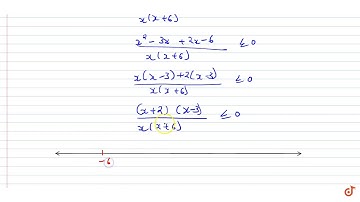 x(x+6)
x² - 3x + 2x - 6 / x(x+6) ≤ 0
x(x-3)+2(x-3) / x(x+6) ≤ 0
(x+2) (x-3) / x(x+6) ≤ 0
-6